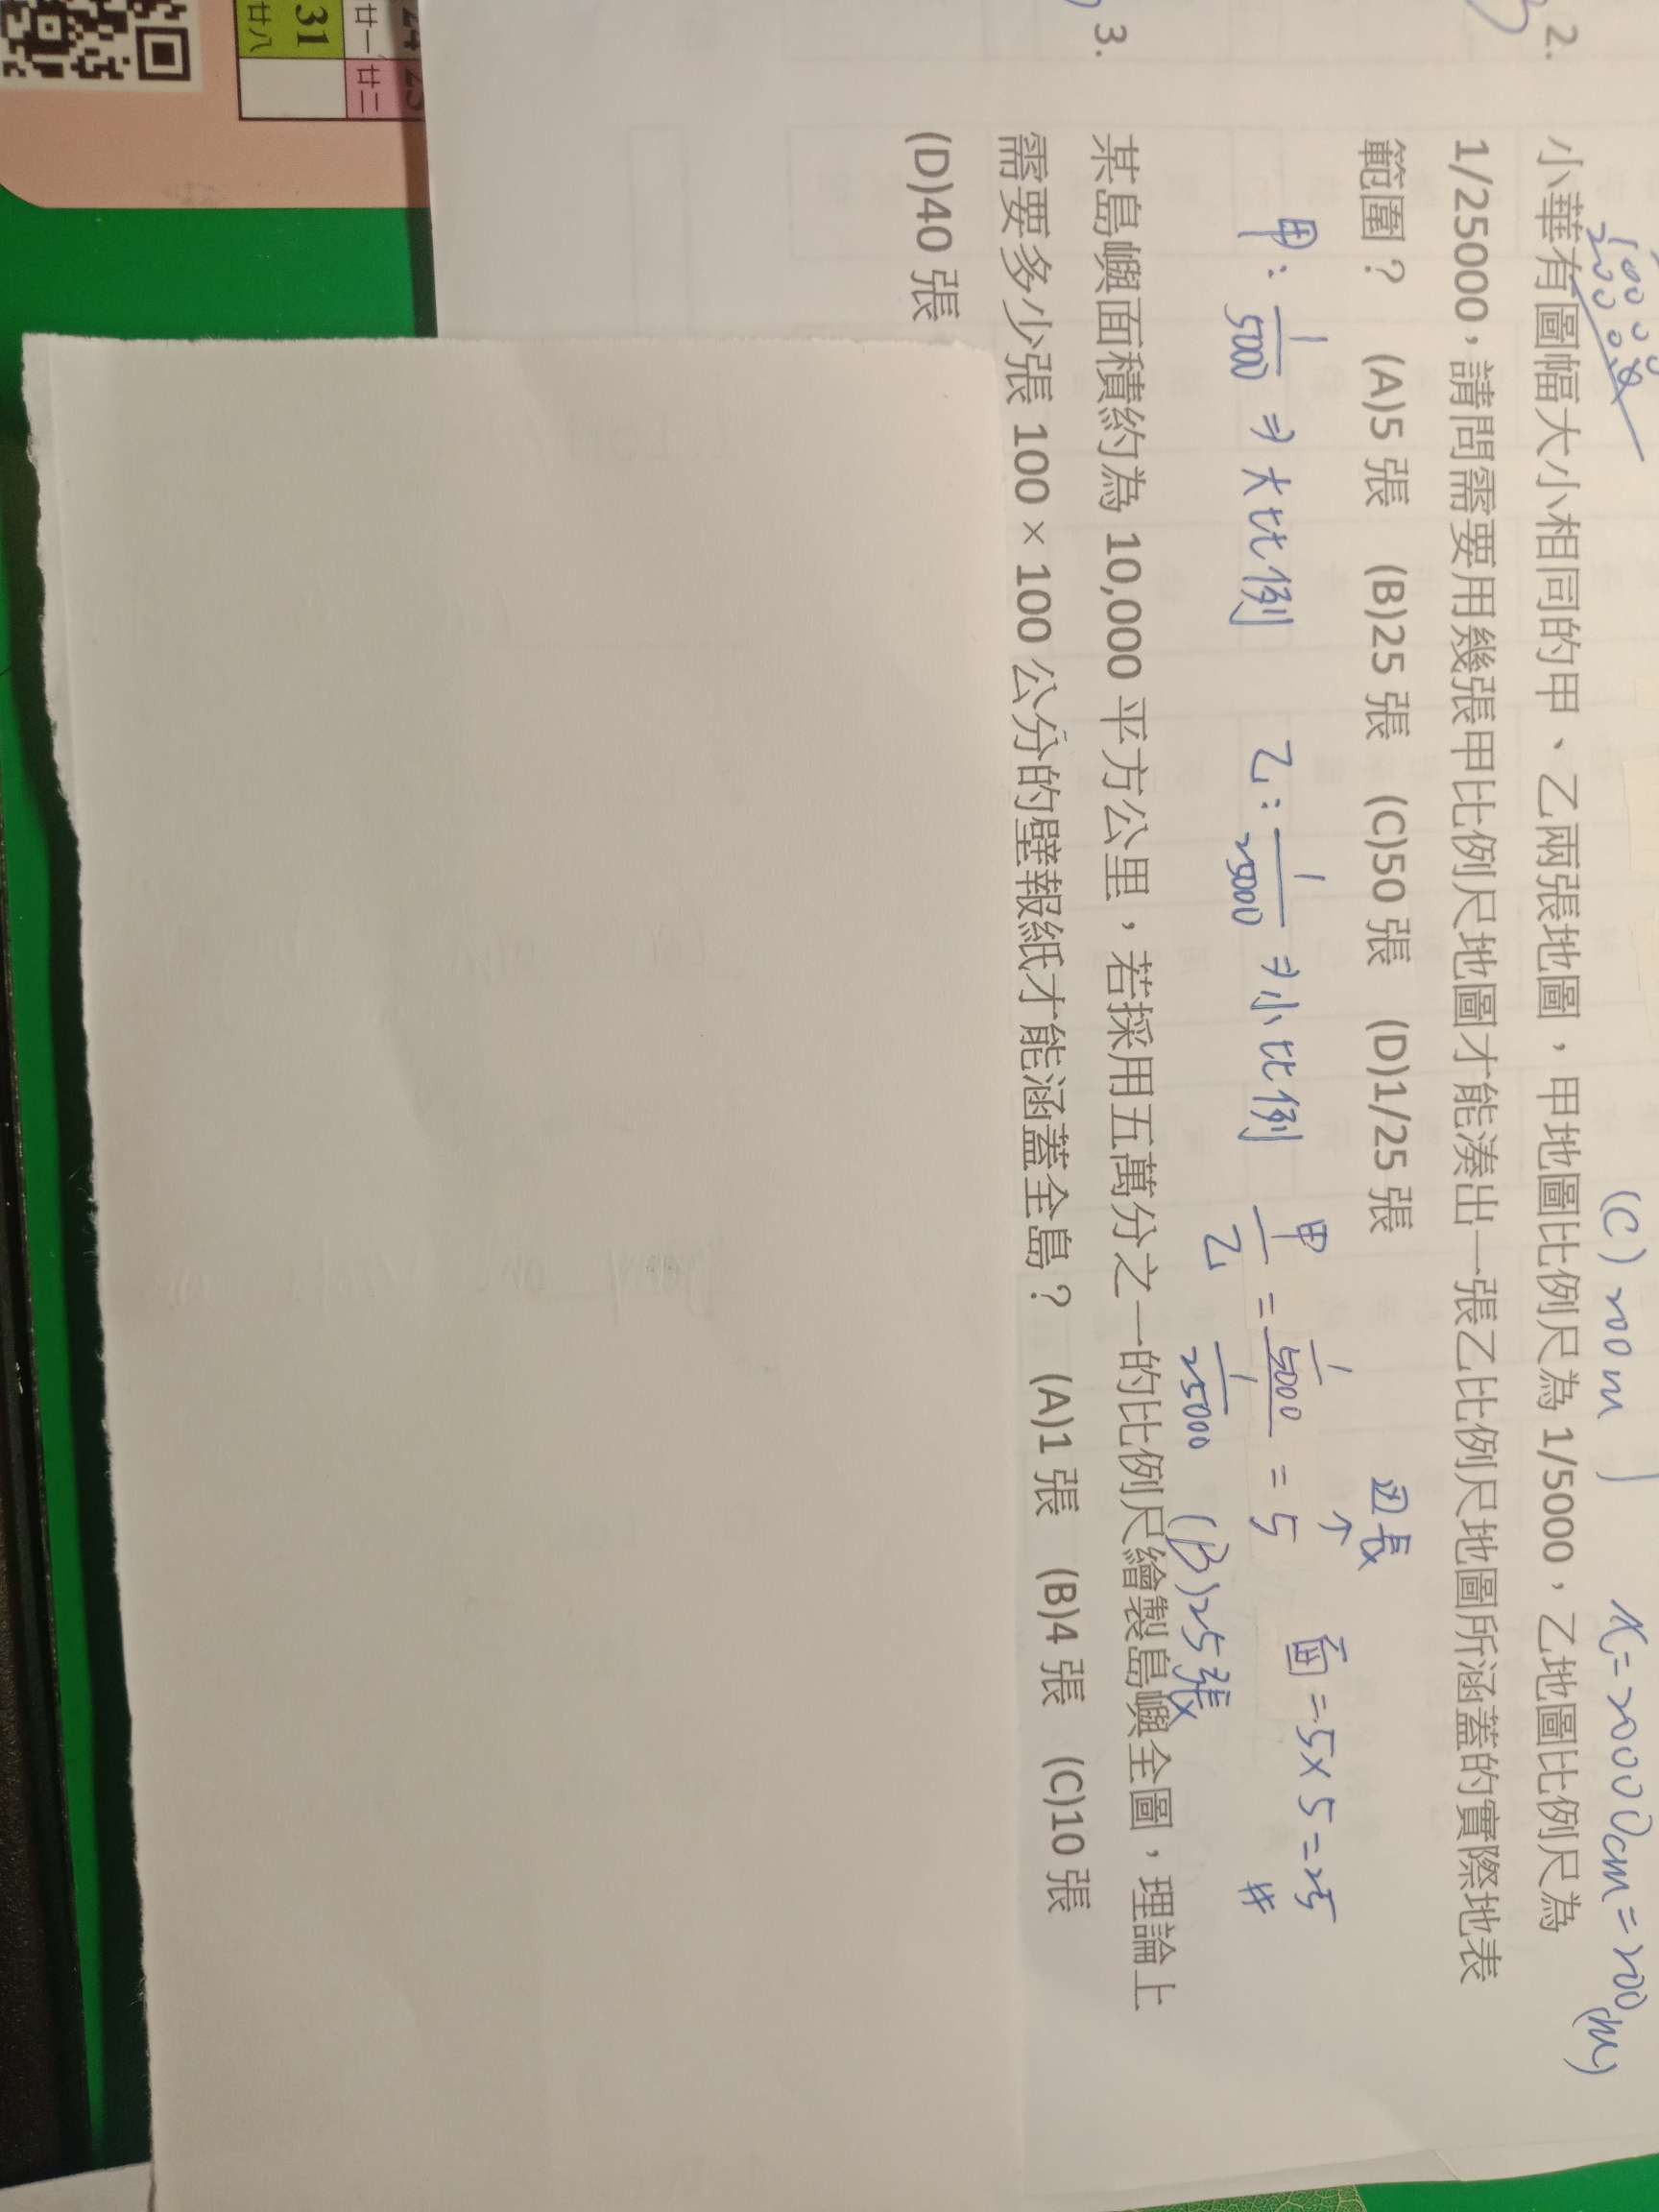 (C) 200m
x=20000cm=200(m)
2.
小華有圖幅大小相同的甲、乙兩張地圖，甲地圖比例尺為 1/5000，乙地圖比例尺為
1/25000，請問需要用幾張甲比例尺地圖才能湊出一張乙比例尺地圖所涵蓋的實際地表
範圍？ (A)5 張 (B)25 張 (C)50 張 (D)1/25 張
边長
↑
甲：1/5000 ⇒ 大比例 乙：1/25000 ⇒ 小比例 甲/乙 = 1/5000 / 1/25000 = 5 面=5×5=25 #
(B)25張
3.
某島嶼面積約為 10,000 平方公里，若採用五萬分之一的比例尺繪製島嶼全圖，理論上
需要多少張 100 × 100 公分的壁報紙才能涵蓋全島？ (A)1 張 (B)4 張 (C)10 張
(D)40 張
24
25
廿一
廿二
31
廿八